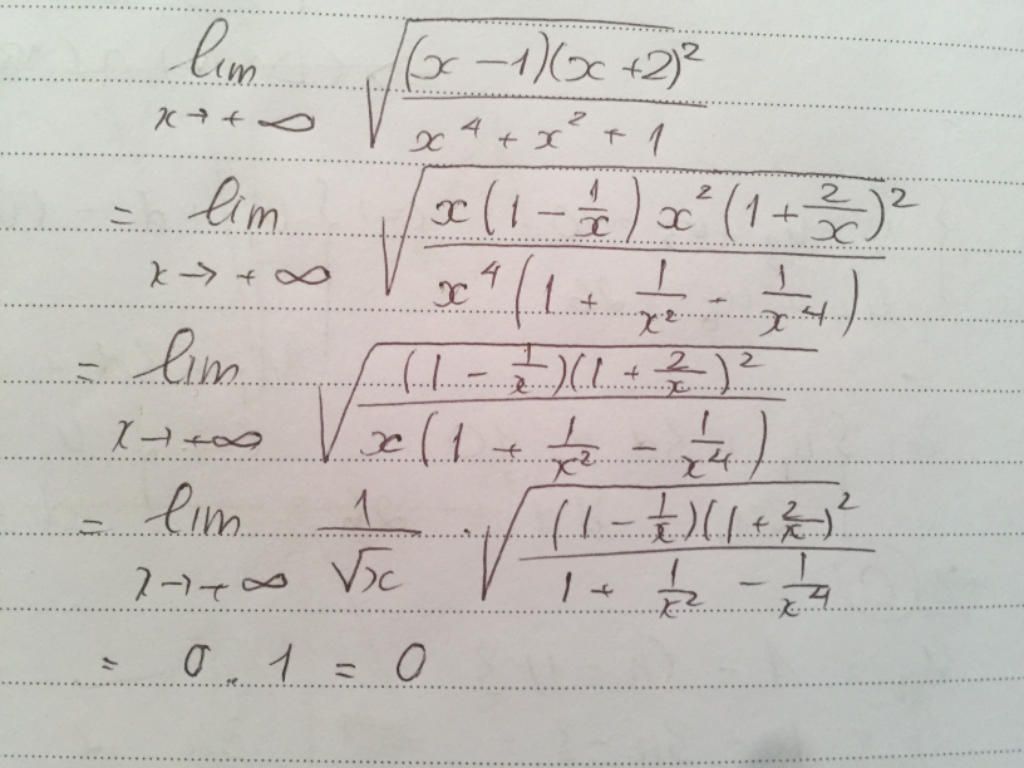 lim x→+∞ √((x-1)(x+2)²/(x⁴+x²+1))
= lim x→+∞ √(x(1-1/x)x²(1+2/x)²/(x⁴(1+1/x²-1/x⁴)))
= lim x→+∞ √((1-1/x)(1+2/x)²/(x(1+1/x²-1/x⁴)))
= lim x→+∞ 1/√x · √((1-1/x)(1+2/x)²/(1+1/x²-1/x⁴))
= 0 . 1 = 0